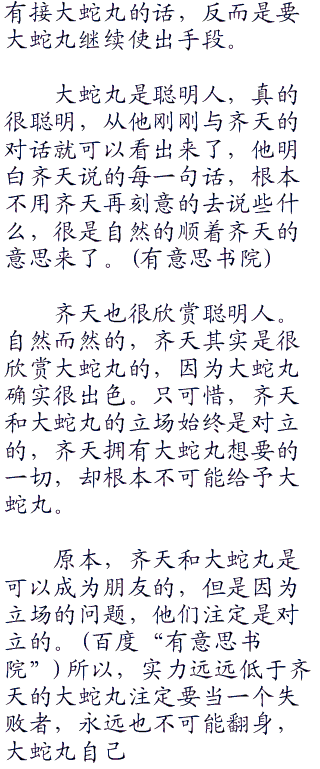 有接大蛇丸的话，反而是要
大蛇丸继续使出手段。
大蛇丸是聪明人，真的
很聪明，从他刚刚与齐天的
对话就可以看出来了，他明
白齐天说的每一句话，根本
不用齐天再刻意的去说些什
么，很是自然的顺着齐天的
意思来了。(有意思书院)
齐天也很欣赏聪明人。
自然而然的，齐天其实是很
欣赏大蛇丸的，因为大蛇丸
确实很出色。只可惜，齐天
和大蛇丸的立场始终是对立
的，齐天拥有大蛇丸想要的
一切，却根本不可能给予大
蛇丸。
原本，齐天和大蛇丸是
可以成为朋友的，但是因为
立场的问题，他们注定是对
立的。(百度“有意思书
院”)所以，实力远远低于齐
天的大蛇丸注定要当一个失
败者，永远也不可能翻身，
大蛇丸自己